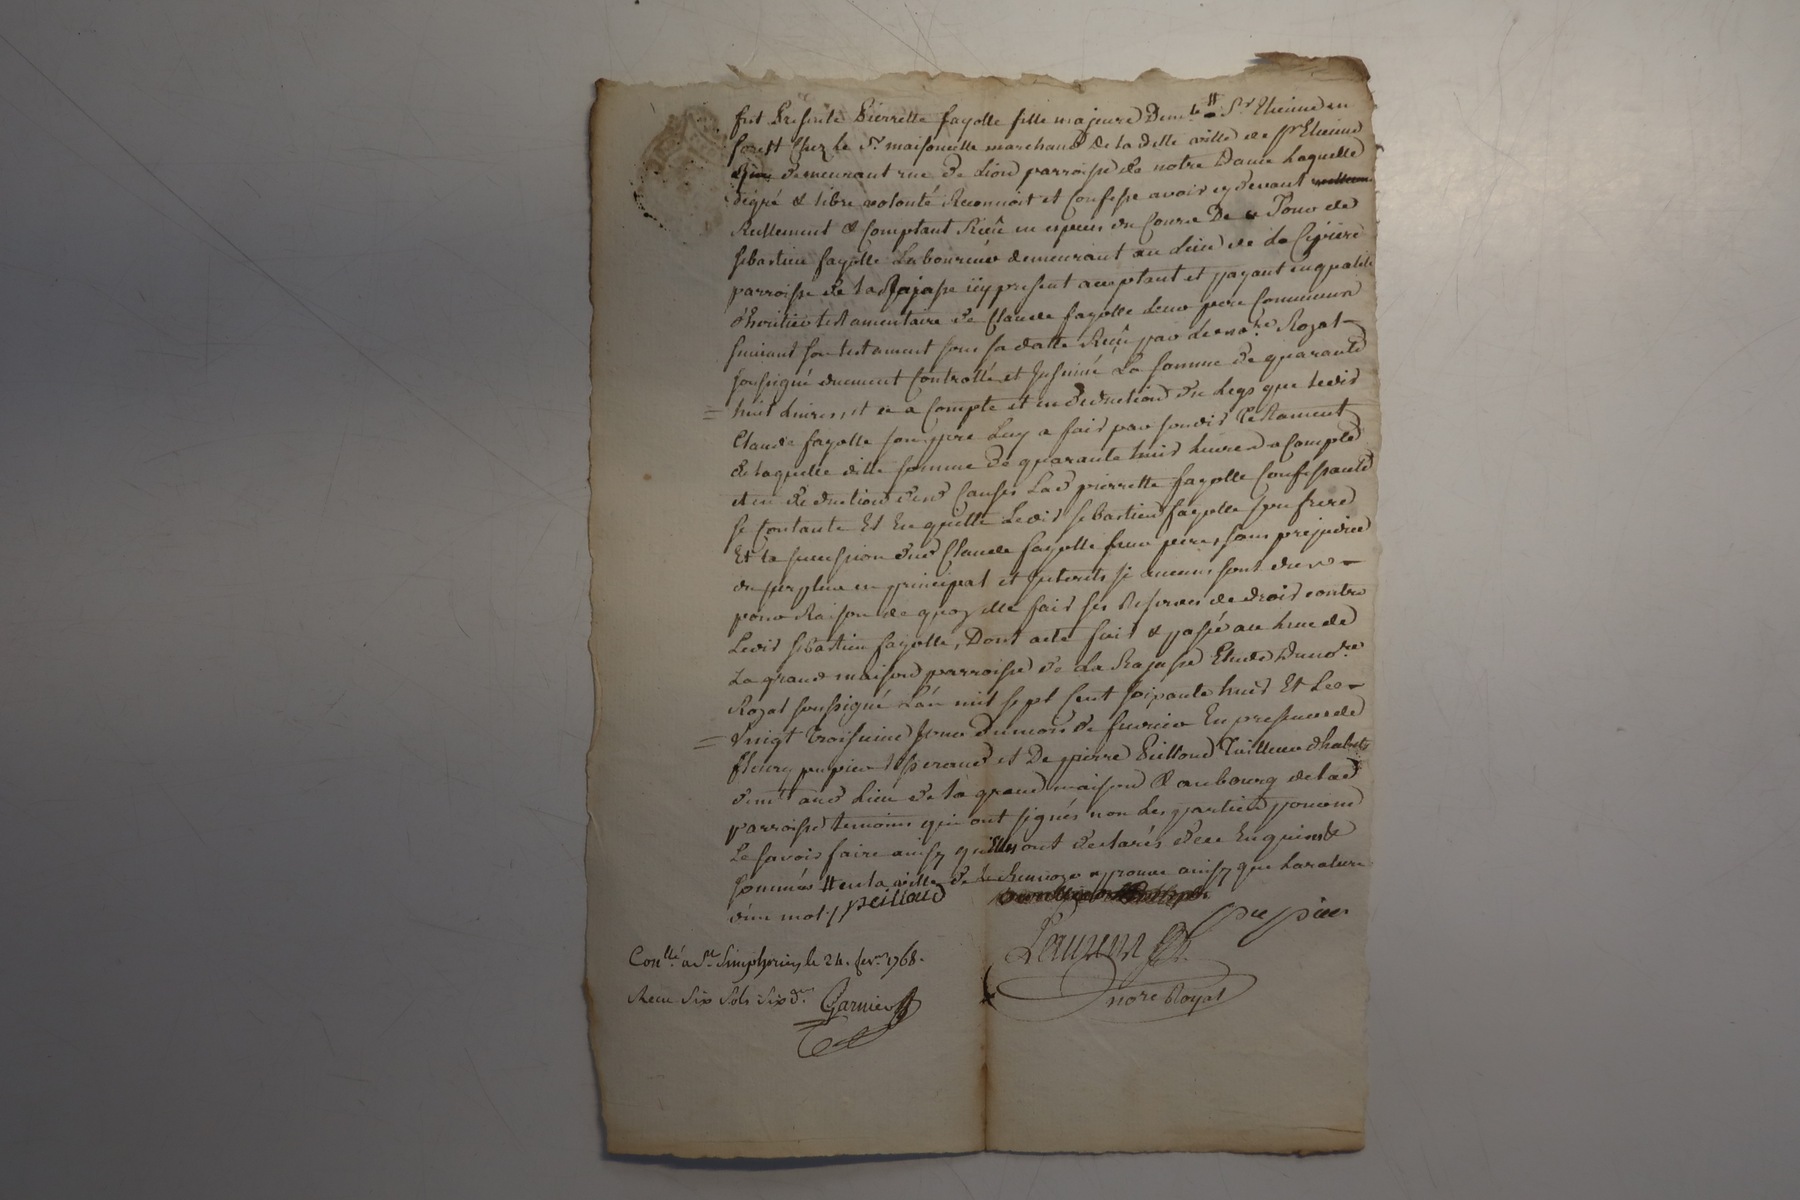 fut Presente Pierrette fayolle fille majeure Demte # St Etienne en
forest chez le Sr maisonneille marchand de ladette ville de St Etienne
demeurant rue de Lion parroisse de notre Dame Laquelle
degré & libre volonté Reconnoit et Confesse avoir cy devant
Reellement & Comptant Recû en especes du Cours De ce Jour de
sebastien fayolle Laboureur demeurant au Lieu de La Cipiere
parroisse de lad Rajasse icy present acceptant et payant en qualité
d'heritier testamentaire de Claude fayolle Leur pere Commun
suivant son testament sous sa datte Reçû par Le nore Royal
soussigné duement Controllé et Insinué La somme de quarante
huit Livres et ce a Compte et en deduction du Legs que Ledit
Claude fayolle son pere Luy a fait par sondit Testament
de laquelle ditte somme de quarante huit Livres a Compte
et en deduction dud Causes Lad pierrette fayolle Confessante
se Contante Et En quitte Ledit sebastien fayolle son frere
Et la succession dud Claude fayolle Leur pere, sans prejudice
du surplus en principal et Interets si aucuns sont dus
pour Raison de quoy elle fait ses Reserves de droit contre
Ledit sebastien fayolle, Dont acte fait & passé au Lieu de
La grand maison parroisse de La Rajasse Etude Dunore
Royal soussigné L'an mil sept Cent soixante huit Et Le
Vingt troisieme Jour Dumois de fevrier En presence de
fleury pupier tisserand et De pierre Peillond Tailleur d'habits
demt aud Lieu de la grand maison & au bourg de lad
parroisse temoins qui ont signés non Les parties pour ne
Le savoir faire ainsy quelles ont declarés dece Enquis &
sommées # en la ville de approuvé ainsy que La rature
d'un mot / peilloud
pupier
Laurent
nore Royal
Conllé a St Simphorien le 24. fevr 1768.
Recu Six Sols Six drs Garnier